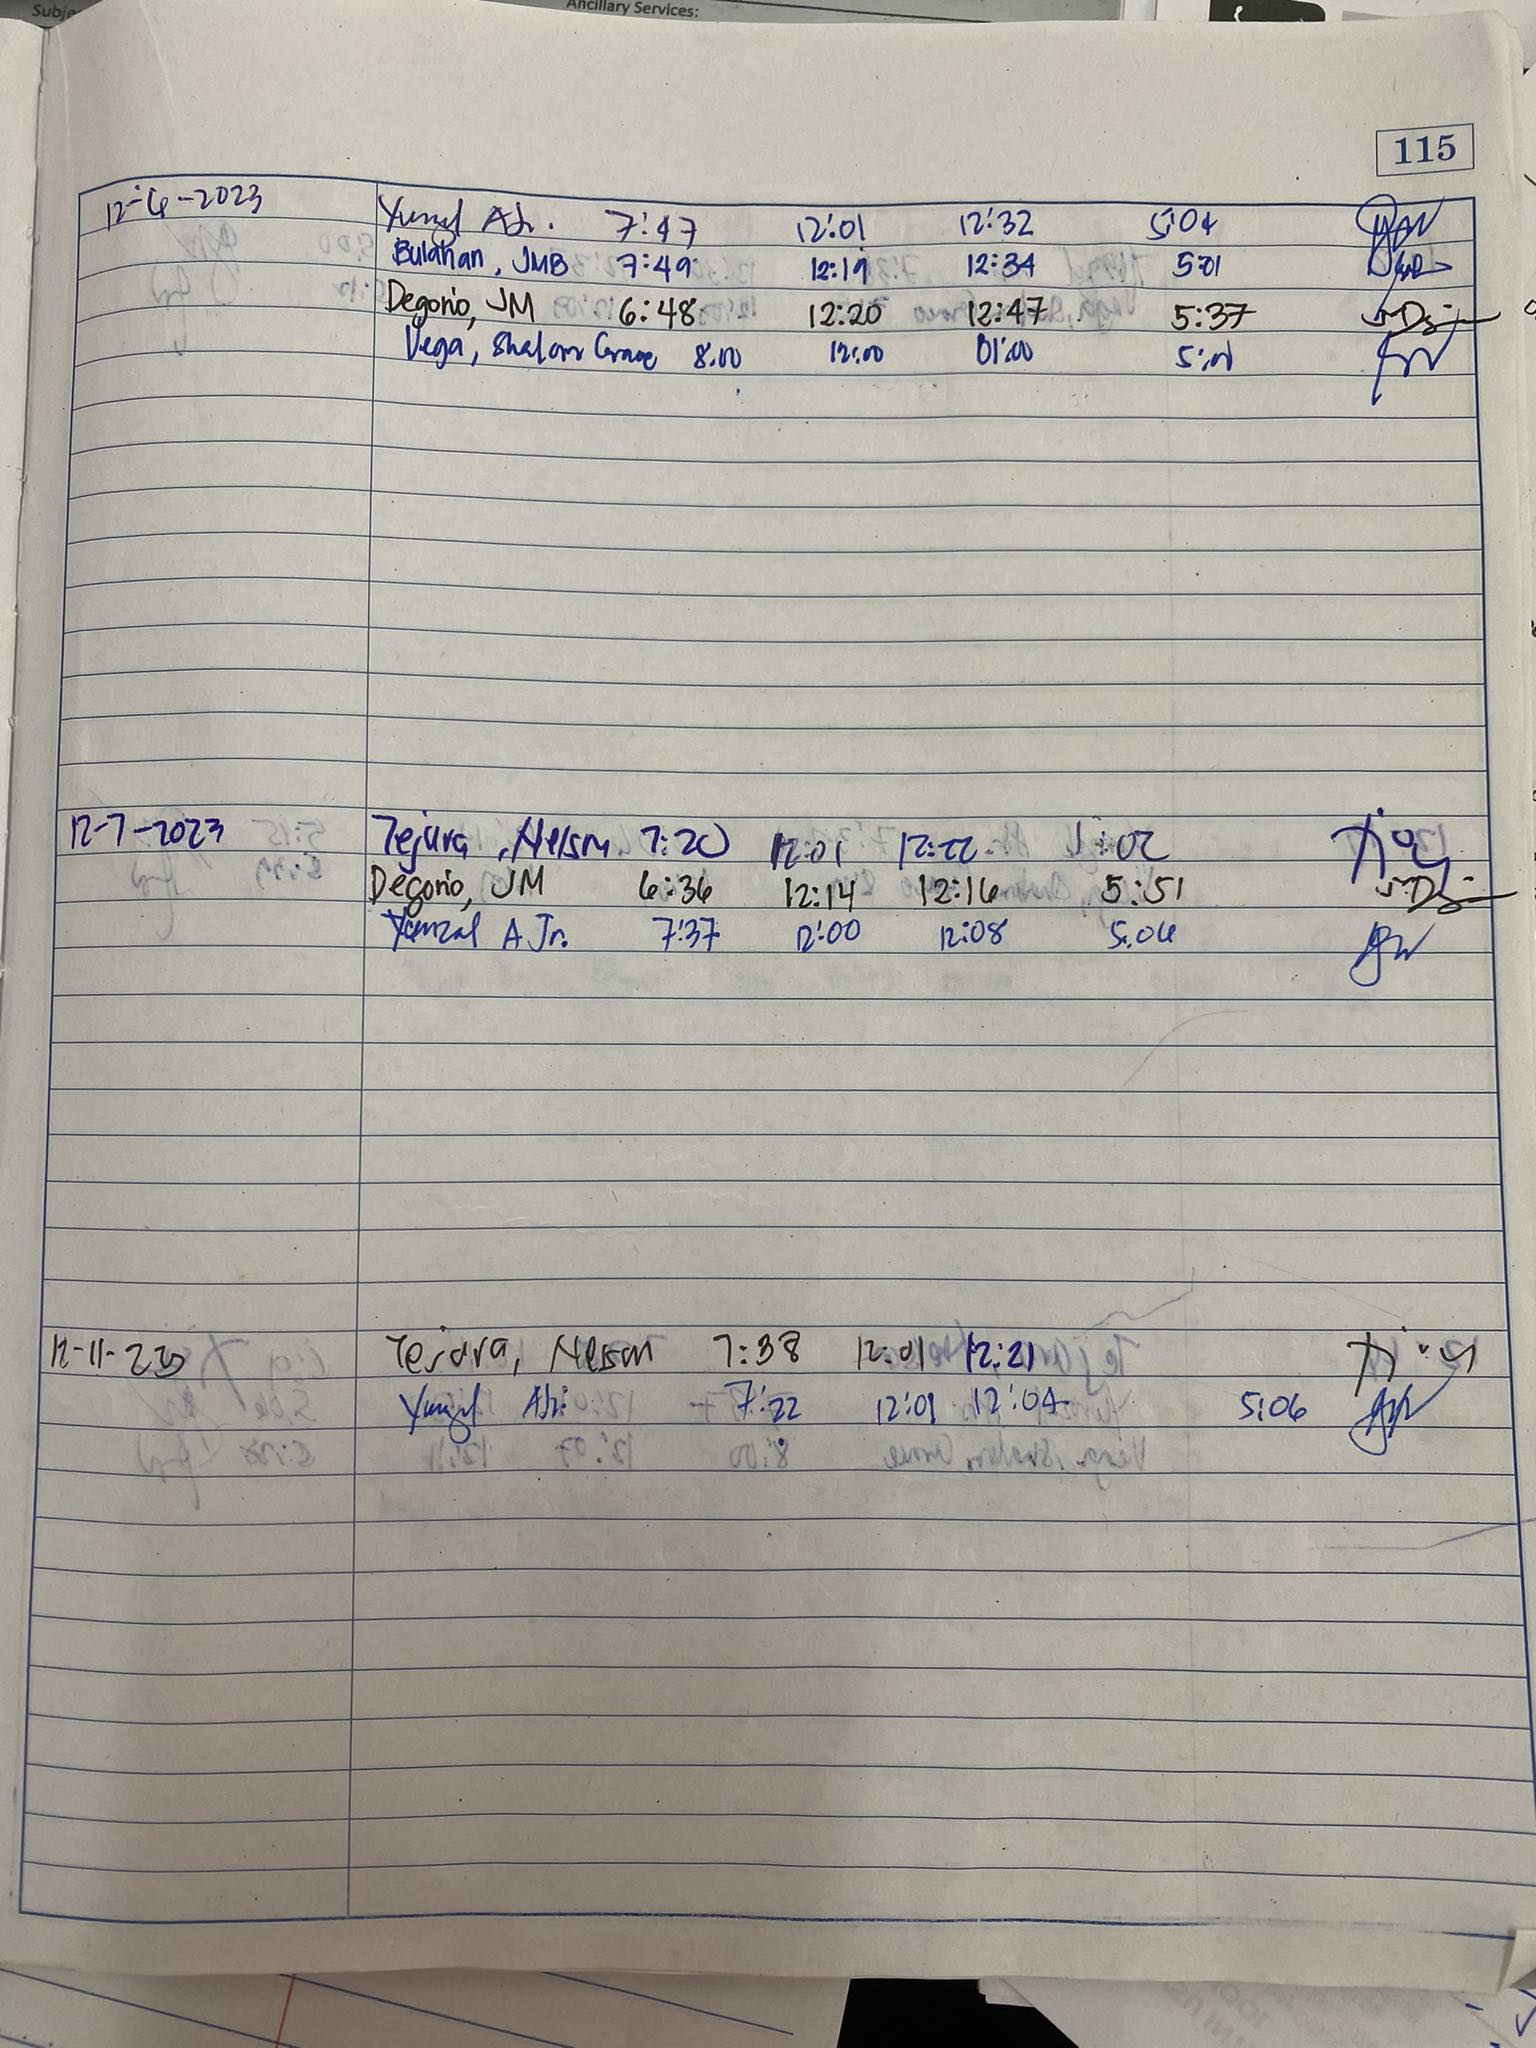 Ancillary Services:
115
12-6-2023 Yunzal A Jr. 7:47 12:01 12:32 5:04
Bulahan, JMB 7:49 12:19 12:34 5:01
Degorio, JM 6:48 12:20 12:47 5:37
Vega, Shalom Grace 8:00 12:00 01:00 5:01
12-7-2023 Tejura, Nelson 7:20 12:01 12:22 :02
Degorio, JM 6:36 12:14 12:16 5:51
Yunzal A Jr. 7:37 12:00 12:08 5:06
12-11-23 Tejura, Nelson 7:38 12:01 12:21
Yunzal A Jr. 7:22 12:01 12:04 5:06